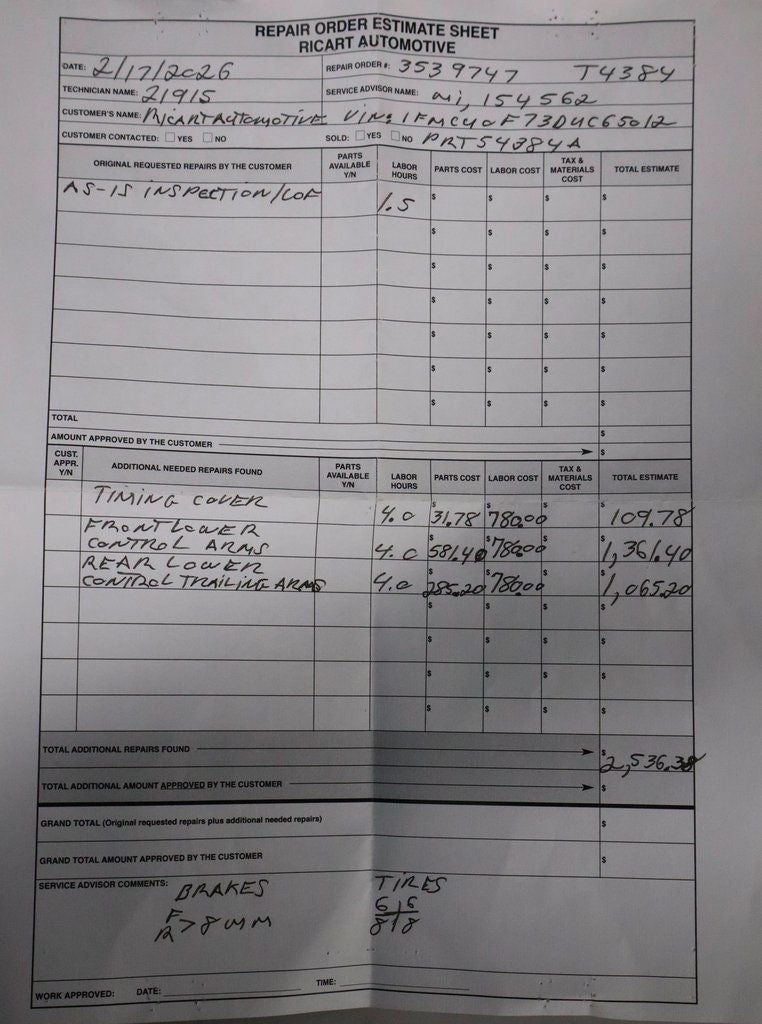 REPAIR ORDER ESTIMATE SHEET
RICART AUTOMOTIVE
DATE: 2/17/2026 REPAIR ORDER #: 3539747 T4384
TECHNICIAN NAME: 21915 SERVICE ADVISOR NAME: mi, 154562
CUSTOMER'S NAME: RICART AUTOMOTIVE VIN:
CUSTOMER CONTACTED: YES NO SOLD: YES NO PRT54384A
ORIGINAL REQUESTED REPAIRS BY THE CUSTOMER PARTS AVAILABLE Y/N LABOR HOURS PARTS COST LABOR COST TAX & MATERIALS COST TOTAL ESTIMATE
AS-IS INSPECTION/LOF 1.5 $ $ $ $
$ $ $ $
$ $ $ $
$ $ $ $
$ $ $ $
$ $ $ $
$ $ $ $
TOTAL $
AMOUNT APPROVED BY THE CUSTOMER $
CUST. APPR. Y/N ADDITIONAL NEEDED REPAIRS FOUND PARTS AVAILABLE Y/N LABOR HOURS PARTS COST LABOR COST TAX & MATERIALS COST TOTAL ESTIMATE
TIMING COVER 4.0 $31.78 $780.00 $ $109.78
FRONT LOWER
CONTROL ARMS 4.0 $581.40 $780.00 $ $1,361.40
REAR LOWER
CONTROL TRAILING ARMS 4.0 $285.20 $780.00 $ $1,065.20
$ $ $ $
$ $ $ $
$ $ $ $
$ $ $ $
TOTAL ADDITIONAL REPAIRS FOUND $2,536.38
TOTAL ADDITIONAL AMOUNT APPROVED BY THE CUSTOMER $
GRAND TOTAL (Original requested repairs plus additional needed repairs) $
GRAND TOTAL AMOUNT APPROVED BY THE CUSTOMER $
SERVICE ADVISOR COMMENTS: BRAKES TIRES
F 6 6
R >8MM 8 8
WORK APPROVED: DATE: TIME: